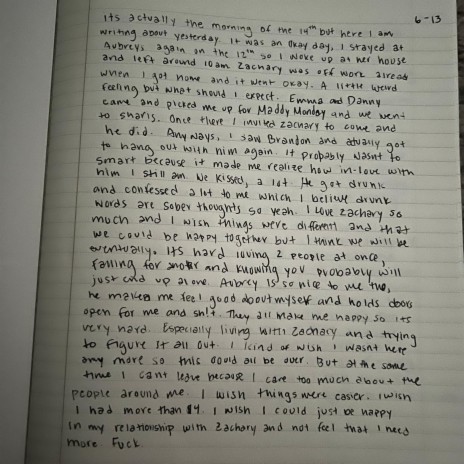 6-13
its actually the morning of the 14th but here I am
writing about yesterday. It was an okay day, I stayed at
Aubreys again on the 12th so I woke up at her house
and left around 10am Zachary was off work alread
when I got home and it went okay. A little weird
feeling but what should I expect. Emma and Danny
came and picked me up for Maddy Monday and we went
to sharis. Once there I invited zachary to come and
he did. Any ways, I saw Brandon and atually got
to hang out with him again. it probably wasnt to
smart because it made me realize how in-love with
him I still am. We kissed, a lot. He got drunk
and confessed a lot to me which I belive drunk
words are sober thoughts so yeah. I love zachary so
much and I wish things were different and that
we could be happy together but I think we will be
eventually. Its hard loving 2 people at once,
falling for and knowing you probably will
just end up alone. Aubrey is so nice to me too,
he makes me feel good about myself and holds doors
open for me and shit. They all make me happy so its
very hard. Especially living with Zachary and trying
to figure it all out. I kind of wish I wasnt here
any more so this could all be over. But at the same
time I cant leave because I care too much about the
people around me. I wish things were easier. I wish
I had more than 14. I wish I could just be happy
in my relationship with Zachary and not feel that I need
more. Fuck.